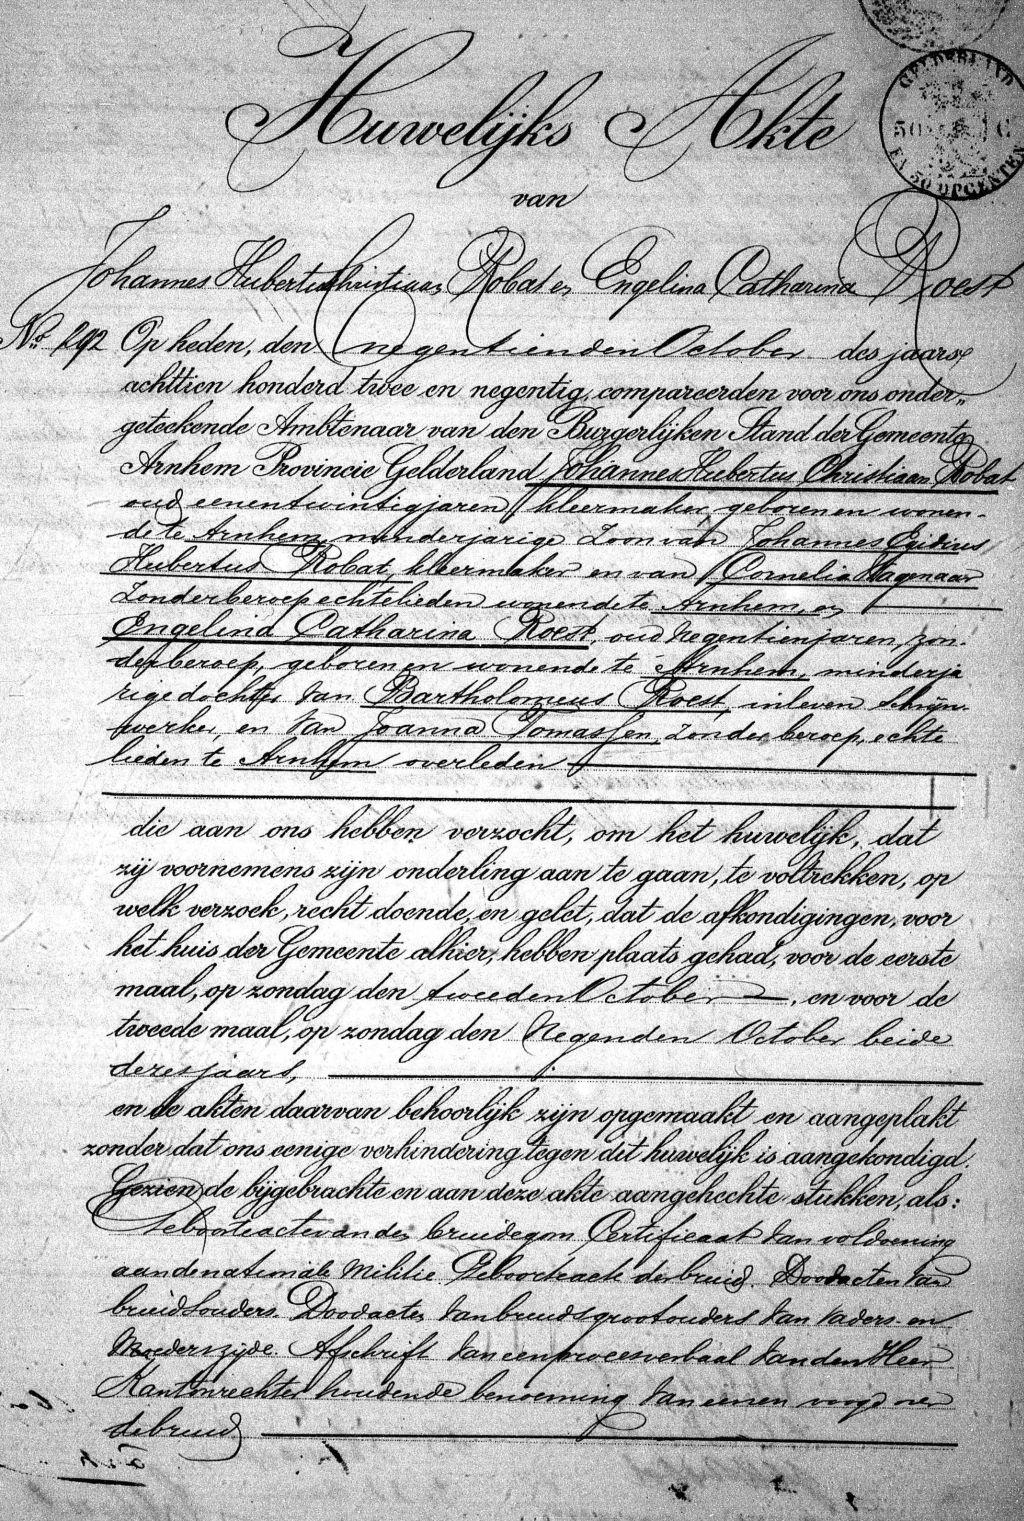 GELDERLAND
50 C
EN 50 OPCENTEN
Huwelijks Akte
van
Johannes Hubertus Christiaan Robat en Engelina Catharina Roest
No. 292 Op heden, den negentienden October des jaars
achttien honderd twee en negentig, compareerden voor ons onder„
geteekende Ambtenaar van den Burgerlijken Stand der Gemeente
Arnhem Provincie Gelderland Johannes Hubertus Christiaan Robat
oud eenentwintig jaren, kleermaker, geboren en wonen-
de te Arnhem, minderjarige Zoon van Johannes Egidius
Hubertus Robat, kleermaker en van Cornelia Wagenaar
Zonder beroep echtelieden wonende te Arnhem, en
Engelina Catharina Roest, oud Negentien jaren, zon-
der beroep, geboren en wonende te Arnhem, minderja
rige dochter van Bartholomeus Roest, in leven Schrijn-
werker, en van Joanna Tomassen, Zonder beroep, echte
lieden te Arnhem overleden
die aan ons hebben verzocht, om het huwelijk, dat
zij voornemens zijn onderling aan te gaan, te voltrekken, op
welk verzoek, recht doende, en gelet, dat de afkondigingen, voor
het huis der Gemeente alhier, hebben plaats gehad, voor de eerste
maal, op zondag den tweeden October, en voor de
tweede maal, op zondag den Negenden October beide
dezes jaars,
en de akten daarvan behoorlijk zijn opgemaakt en aangeplakt
zonder dat ons eenige verhindering tegen dit huwelijk is aangekondigd.
Gezien de bijgebrachte en aan deze akte aangehechte stukken, als:
Geboorteacte van den bruidegom Certificaat van voldoening
aan de nationale Militie Geboorteacte der bruid. Doodacten van
bruidsouders. Doodacten van bruidsgrootouders van vaders- en
Moederszijde. Afschrift van een procesverbaal van den Heer
Kantonrechter houdende benoeming van eenen voogd over
de bruid